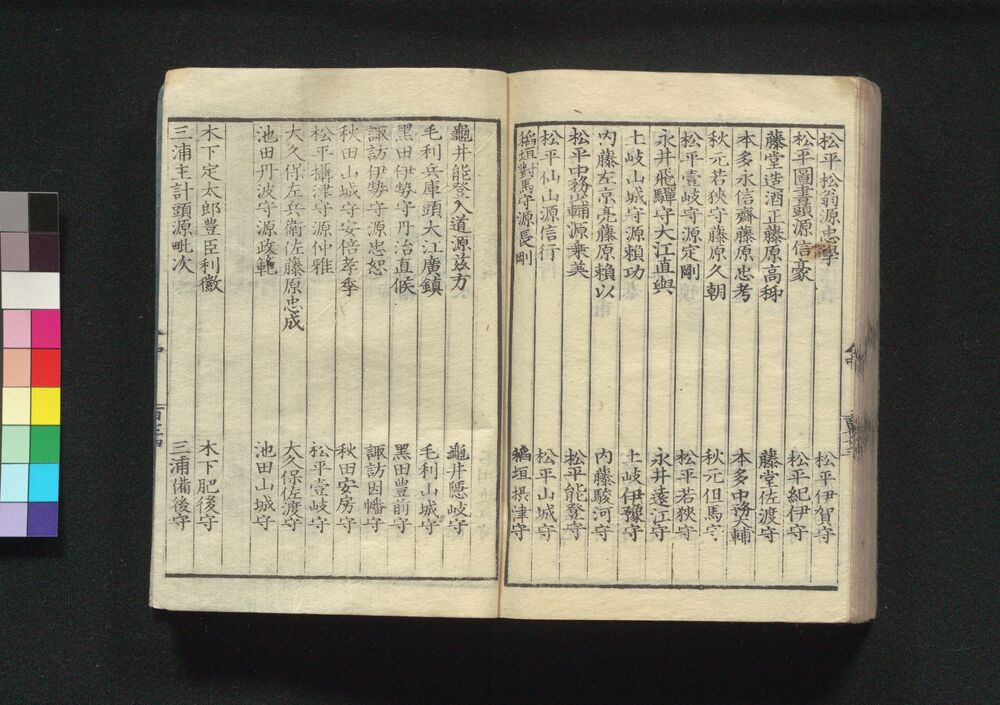 松平松翁源忠學 松平伊賀守
松平圖書頭源信豪 松平紀伊守
藤堂造酒正藤原高秭 藤堂佐渡守
本多永信齋藤原忠考 本多中務大輔
秋元若狹守藤原久朝 秋元但馬守
松平壹岐守源定剛 松平若狹守
永井飛驒守大江直與 永井遠江守
土岐山城守源賴功 土岐伊豫守
内藤左京亮藤原賴以 内藤駿河守
松平中務少輔源乗美 松平能登守
松平仙山源信行 松平山城守
稲垣對馬守源長剛 稲垣摂津守
龜井能登入道源茲方 龜井隠岐守
毛利兵庫頭大江廣鎮 毛利山城守
黑田伊勢守丹治直候 黑田豊前守
諏訪伊勢守源忠恕 諏訪因幡守
秋田山城守安倍孝季 秋田安房守
松平攝津守源仲雅 松平壹岐守
大久保左兵衛佐藤原忠成 大久保佐渡守
池田丹波守源政範 池田山城守
木下定太郎豊臣利徽 木下肥後守
三浦主計頭源毗次 三浦備後守